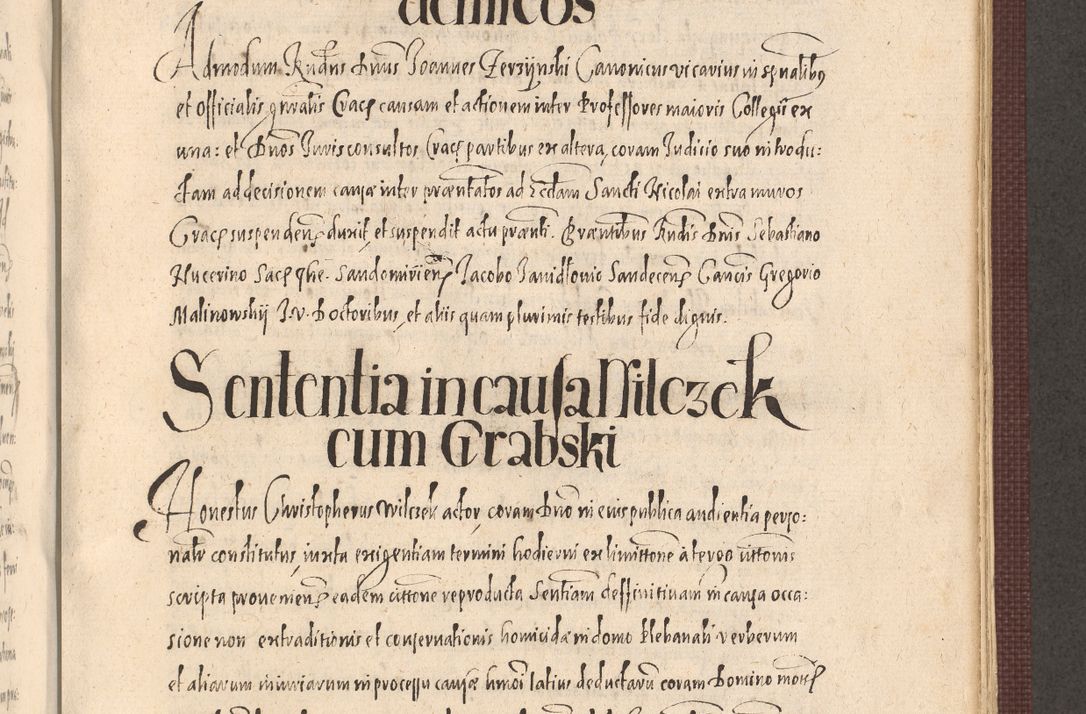 demicos
Admodum Rndus Dnus Joannes Jerzijnski Canonicus vicarius in spualibus
et officialis gnralis Crac causam et actionem inter Professores maioris Collegii ex
una: et Dnos Jurisconsultos Crac partibus ex altera, coram Judicio suo introdu:
ctam ad decisionem causæ inter præntatos ad Eccłam Sancti Nicolai extra muros
Crac suspenden duxit, et suspendit actu prænti. Præntibus Rndis Dnis Sebastiano
Nucerino Sac The. Sandomirien Jacobo Janidłovic Sandecen Cancis Gregorio
Malinowskij J.V. Doctoribus, et aliis quam plurimis testibus fide dignis.
Sententia in causa Wilczek
cum Grabski
Honestus Christophorus Wilczek actor, coram Dno in eius publica audientia perso:
nalr constitutus, iuxta exigentiam termini hodierni ex limittone à tergo cittonis
scripta provenien eadem cittone reproducta Sentiam deffinitivam in causa occa:
sione non extraditionis et conservationis homicidæ in domo Plebanali verberum
et aliarum iniuriarum in processu causæ hmoi latius deductaru coram Domino